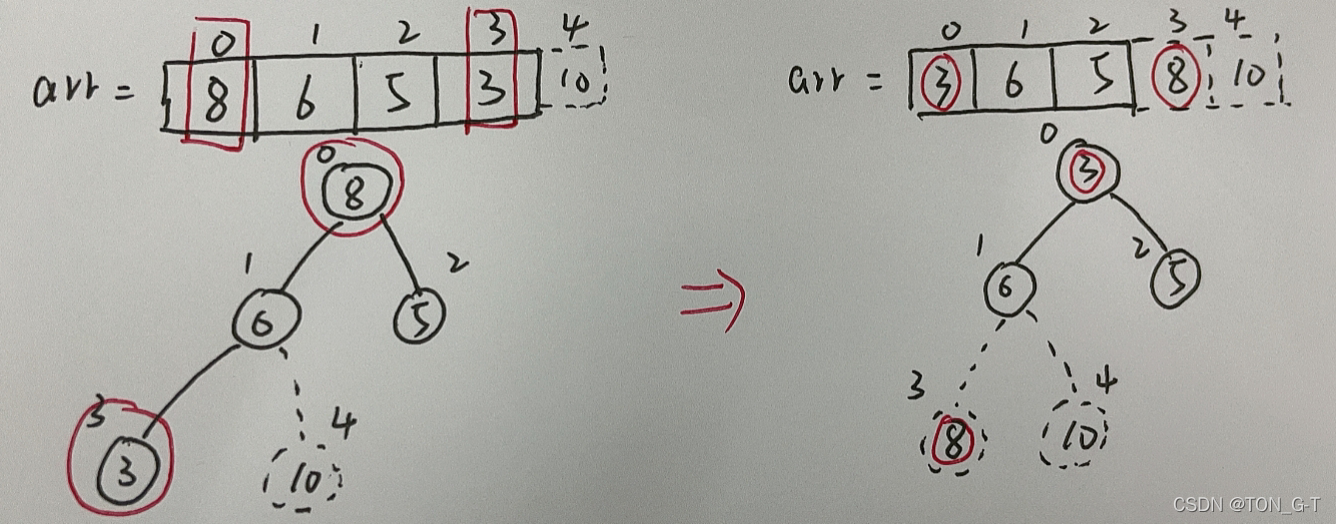 0 1 2 3 4
arr = 8 6 5 3 10
0
8
1 2
6 5
3 4
3 10
⇒
0 1 2 3 4
arr = 3 6 5 8 10
0
3
1 2
6 5
3 4
8 10
CSDN @TON_G-T